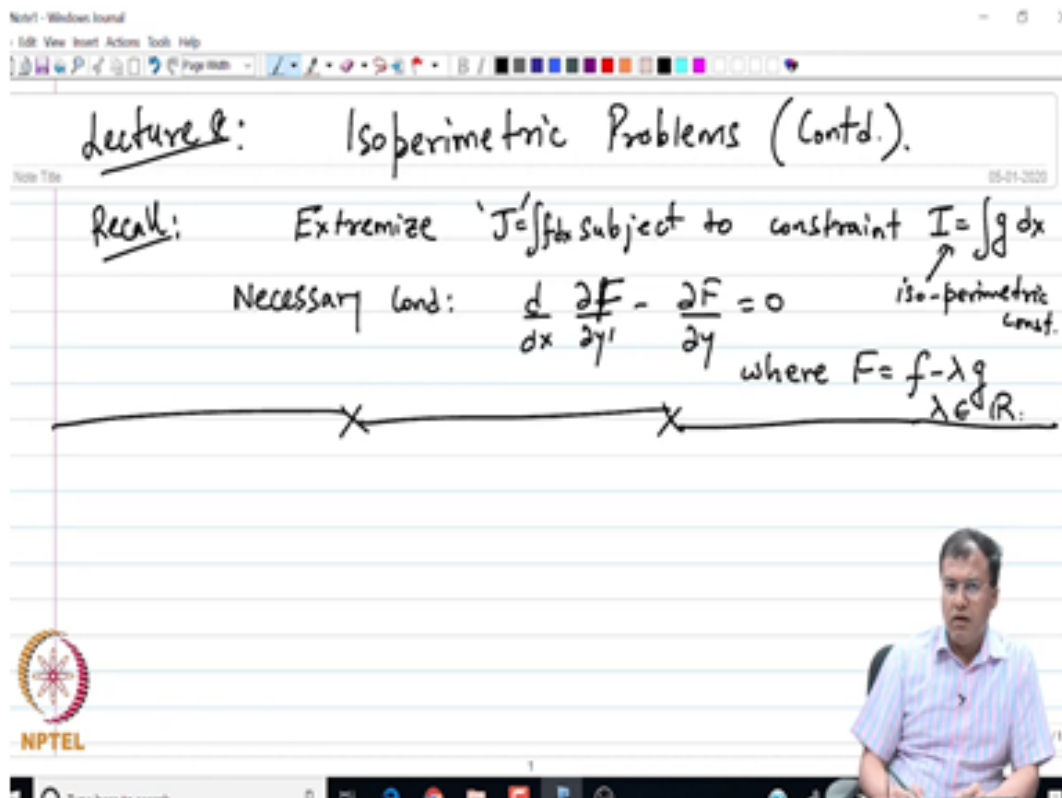 Note1 - Windows Journal
Edit View Insert Actions Tools Help
Page Width
B I
Lecture 8: Isoperimetric Problems (Contd.).
Note Title
05-01-2020
Recall: Extremize 'J'=∫fdx subject to constraint I = ∫g dx
iso-perimetric
const.
Necessary Cond: d/dx ∂F/∂y' - ∂F/∂y = 0
where F = f - λg
λ ∈ ℝ.
NPTEL
1